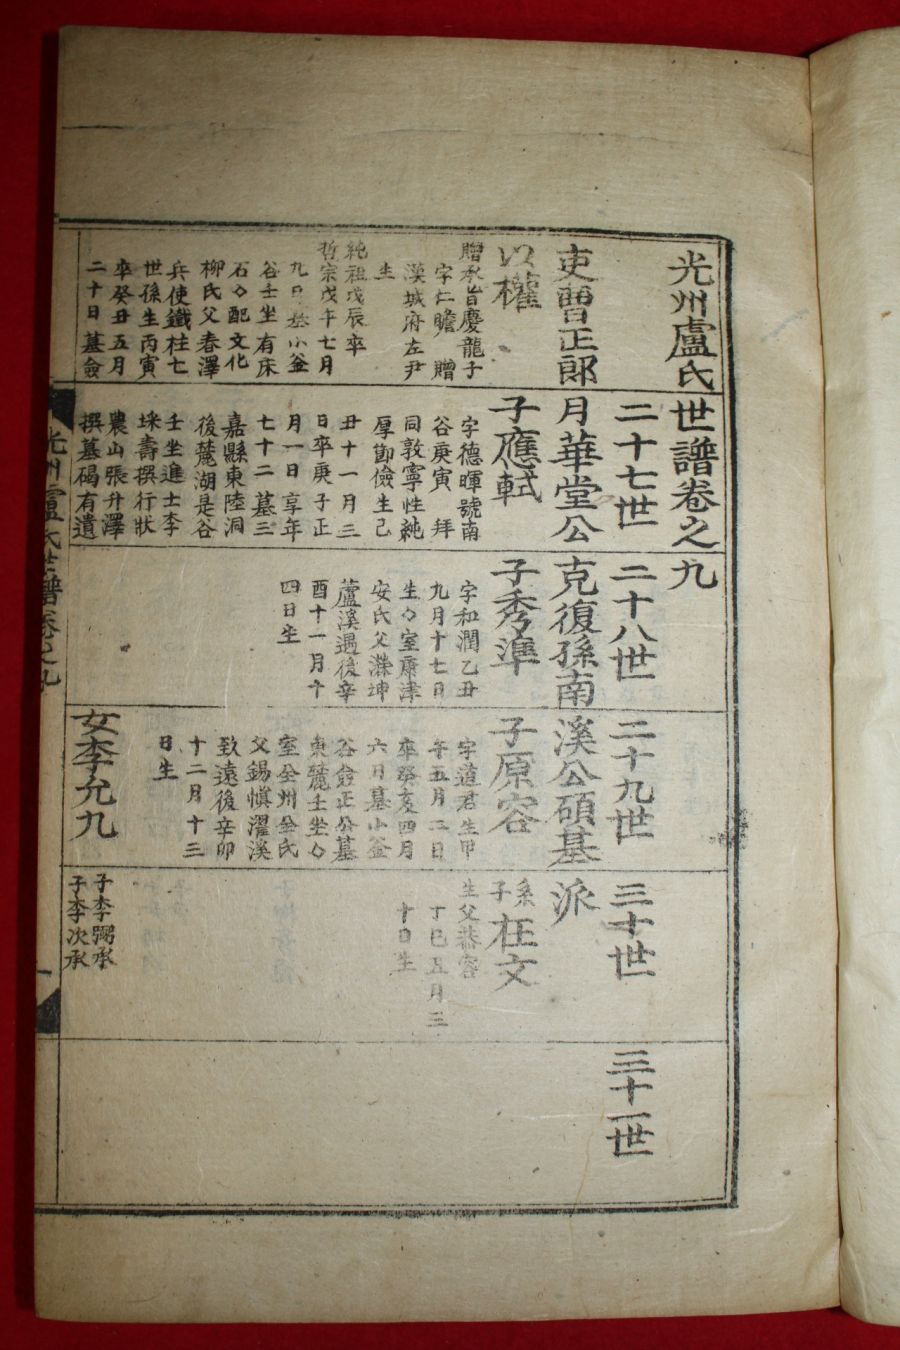 光州盧氏世譜卷之九
二十七世
二十八世
二十九世
三十世
三十一世
吏曹正郎月華堂公克復孫南溪公碩基派
以權
贈承旨慶龍子
字仁瞻 贈
漢城府左尹
生
純祖戊辰卒
哲宗戊午七月
九日墓小釜
谷壬坐有床
石◇配文化
柳氏父春澤
兵使鐵柱七
世孫生丙寅
卒癸丑五月
二十日墓僉
子應軾
字德暉號南
谷庚寅 拜
同敦寧性純
厚節儉生己
丑十一月三
日卒庚子正
月一日享年
七十二墓三
嘉縣東陸洞
後麓湖是谷
壬坐進士李
埰壽撰行狀
農山張升澤
撰墓碣有遺
子秀準
字和潤乙丑
九月十七日
生◇室康津
安氏父濼坤
蘆溪遇後辛
酉十一月十
四日生
子原容
字道君生甲
午五月二日
卒癸亥四月
六月墓小釜
谷僉正公墓
東麓壬坐◇
室全州全氏
父錫愼濯溪
致遠後辛卯
十二月十三
日生
女李允九
系子在文
生父恭容
丁巳五月三
十日生
子李弼承
子李次承
光州盧氏世譜卷之九
一